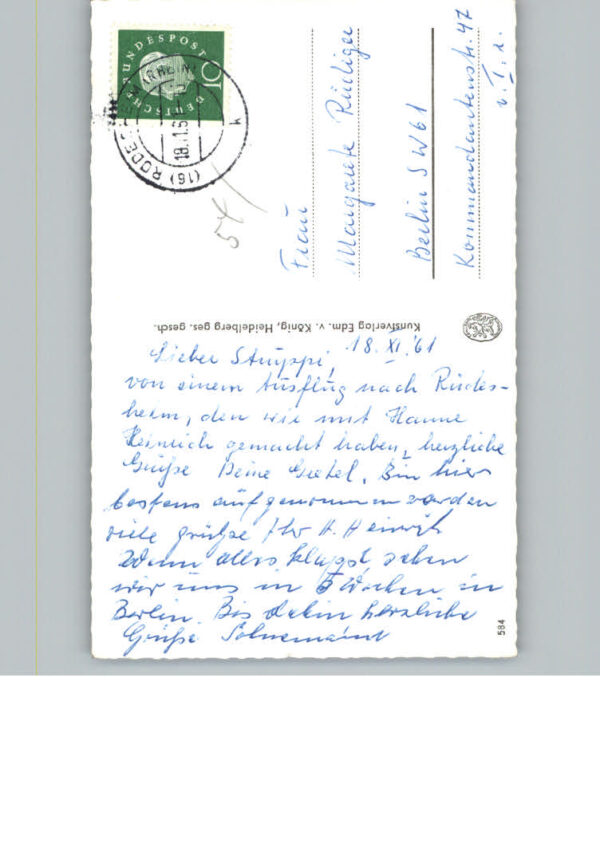 DEUTSCHE BUNDESPOST
10
(16) RÜDESHEIM (RHEIN)
54
Frau
Margarete Rüdiger
Berlin SW 61
Kommandantenstr. 47
v. I. r.
Kunstverlag Edm. v. König, Heidelberg ges. gesch.
18. XI. 61
Lieber Struppi,
von einem Ausflug nach Rüdes-
heim, den wir mit Hanne
Heinrich gemacht haben, herzliche
Grüße Deine Gretel. Bin hier
bestens aufgenommen worden
viele grüße Ihr H. Heinrich
Wenn alles klappt, sehen
wir uns in 3 Wochen in
Berlin. Bis dahin herzliche
Grüße
584